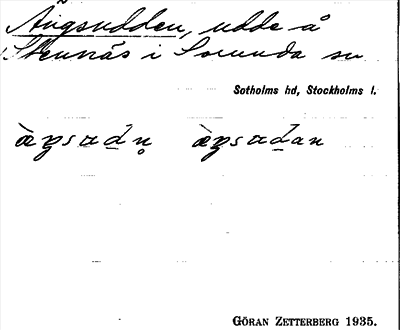 Ängsudden, udde å
Stennäs i Sorunda sn
Sotholms hd, Stockholms l.
GÖRAN ZETTERBERG 1935.